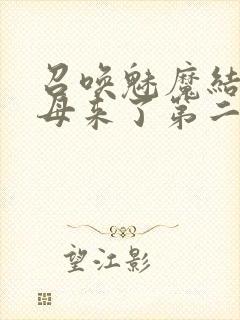 召唤魅魔結
母来了第二
望江影